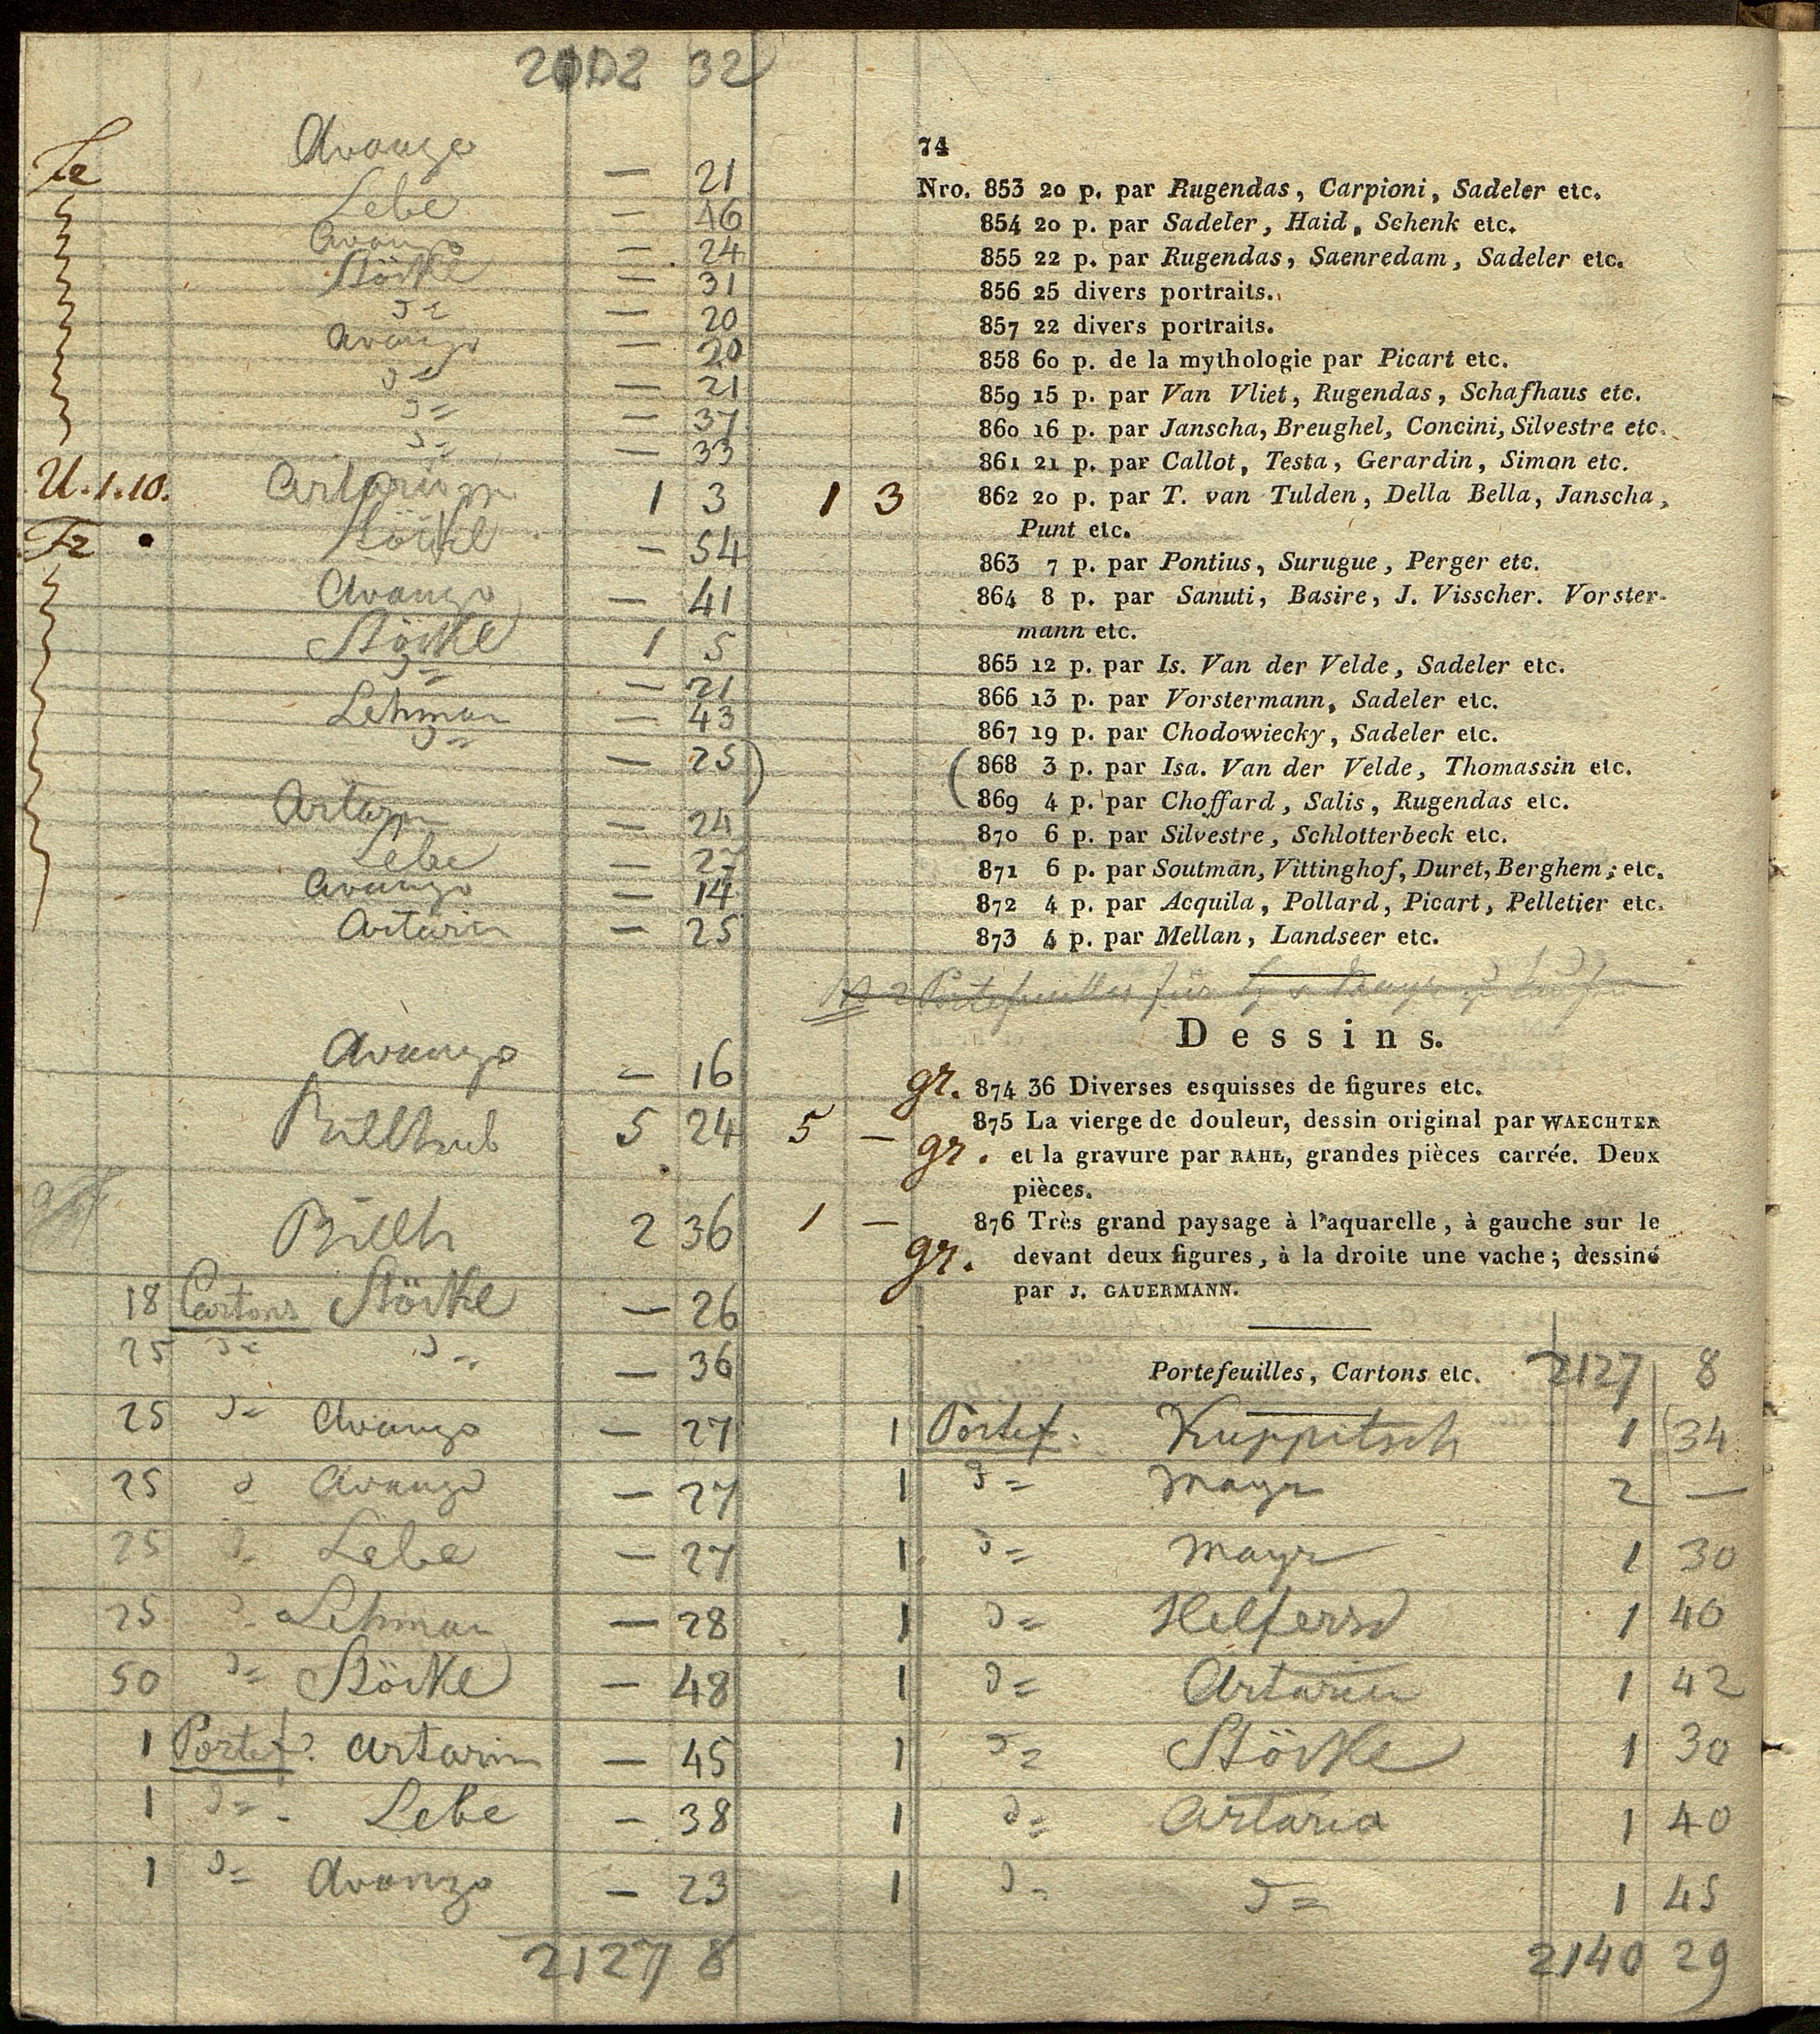 32
74
Avanzo — 21
Nro. 853 20 p. par Rugendas, Carpioni, Sadeler etc.
Lebe — 46
854 20 p. par Sadeler, Haid, Schenk etc.
Avanzo — 24
855 22 p. par Rugendas, Saenredam, Sadeler etc.
Störkle — 31
856 25 divers portraits.
— 20
857 22 divers portraits.
Avanzo — 20
858 60 p. de la mythologie par Picart etc.
— 21
859 15 p. par Van Vliet, Rugendas, Schafhaus etc.
— 37
860 16 p. par Janscha, Breughel, Concini, Silvestre etc.
— 33
861 21 p. par Callot, Testa, Gerardin, Simon etc.
U. 1. 10. 1 3 1 3
862 20 p. par T. van Tulden, Della Bella, Janscha,
Punt etc.
— 54
863 7 p. par Pontius, Surugue, Perger etc.
Avanzo — 41
864 8 p. par Sanuti, Basire, J. Visscher. Vorster-
mann etc.
Störkle 1 5
865 12 p. par Is. Van der Velde, Sadeler etc.
— 21
866 13 p. par Vorstermann, Sadeler etc.
Lehman — 43
867 19 p. par Chodowiecky, Sadeler etc.
— 25 )
( 868 3 p. par Isa. Van der Velde, Thomassin etc.
869 4 p. par Choffard, Salis, Rugendas etc.
— 24
870 6 p. par Silvestre, Schlotterbeck etc.
Lebe — 27
871 6 p. par Soutman, Vittinghof, Duret, Berghem; etc.
Avanzo — 14
872 4 p. par Acquila, Pollard, Picart, Pelletier etc.
Artaria — 25
873 4 p. par Mellan, Landseer etc.
Dessins.
Avanzo — 16
gr. 874 36 Diverses esquisses de figures etc.
5 24 5 —
875 La vierge de douleur, dessin original par WAECHTER
gr. et la gravure par RAHL, grandes pièces carrée. Deux
pièces.
2 36 1 —
876 Très grand paysage à l'aquarelle, à gauche sur le
gr. devant deux figures, à la droite une vache; dessiné
par J. GAUERMANN.
18 Cartons Störkle — 26
25 — 36
Portefeuilles, Cartons etc. 2127 8
25 Avanzo — 27
1 Portef. Kuppitsch 1 34
25 Avanzo — 27
1 Mayr 2 —
25 Lebe — 27
1 Mayr 1 30
25 Lehman — 28
1 1 40
50 Störkle — 48
1 Artaria 1 42
1 Portef. Artaria — 45
1 Störkle 1 30
1 Lebe — 38
1 Artaria 1 40
1 Avanzo — 23
1 1 45
2127 8
2140 29